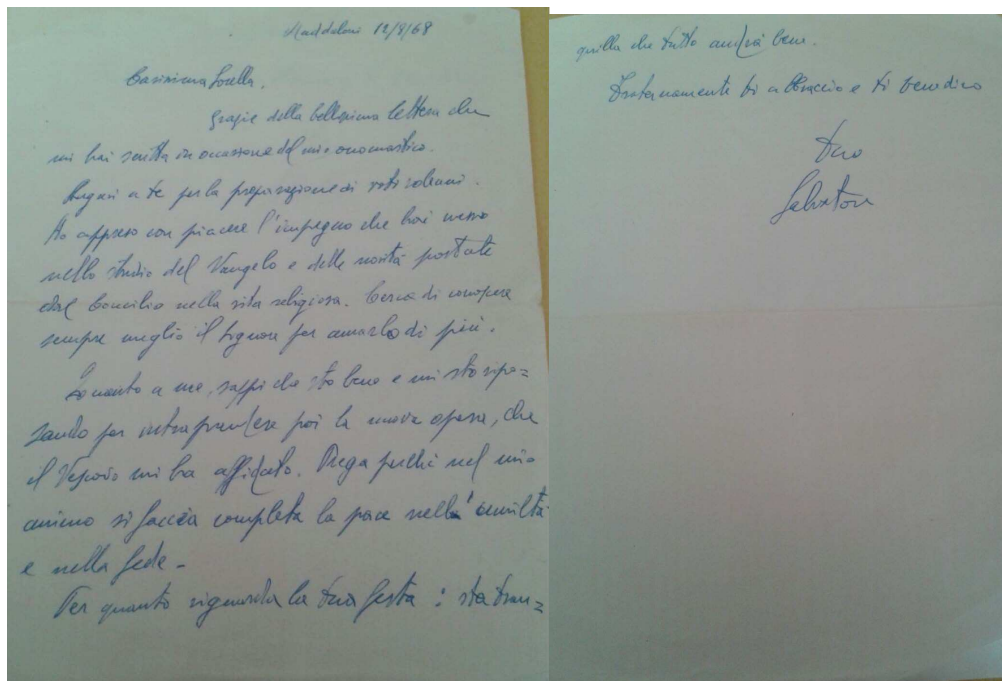 Maddaloni 12/8/68
Carissima Sorella,
Grazie della bellissima lettera che
mi hai scritta in occasione del mio onomastico.
Auguri a te per la preparazione ai voti solenni.
Ho appreso con piacere l'impegno che hai messo
nello studio del Vangelo e delle novità portate
dal Concilio nella vita religiosa. Cerca di conoscere
sempre meglio il Signore per amarlo di più.
In quanto a me, sappi che sto bene e mi sto ripo=
sando per intraprendere poi la nuova opera, che
il Vescovo mi ha affidato. Prega perché nel mio
animo si faccia completa la pace nell'umiltà
e nella fede -
Per quanto riguarda la tua festa: sta tran=
quilla che tutto andrà bene.
Fraternamente ti abbraccio e ti benedico
tuo
Salvatore